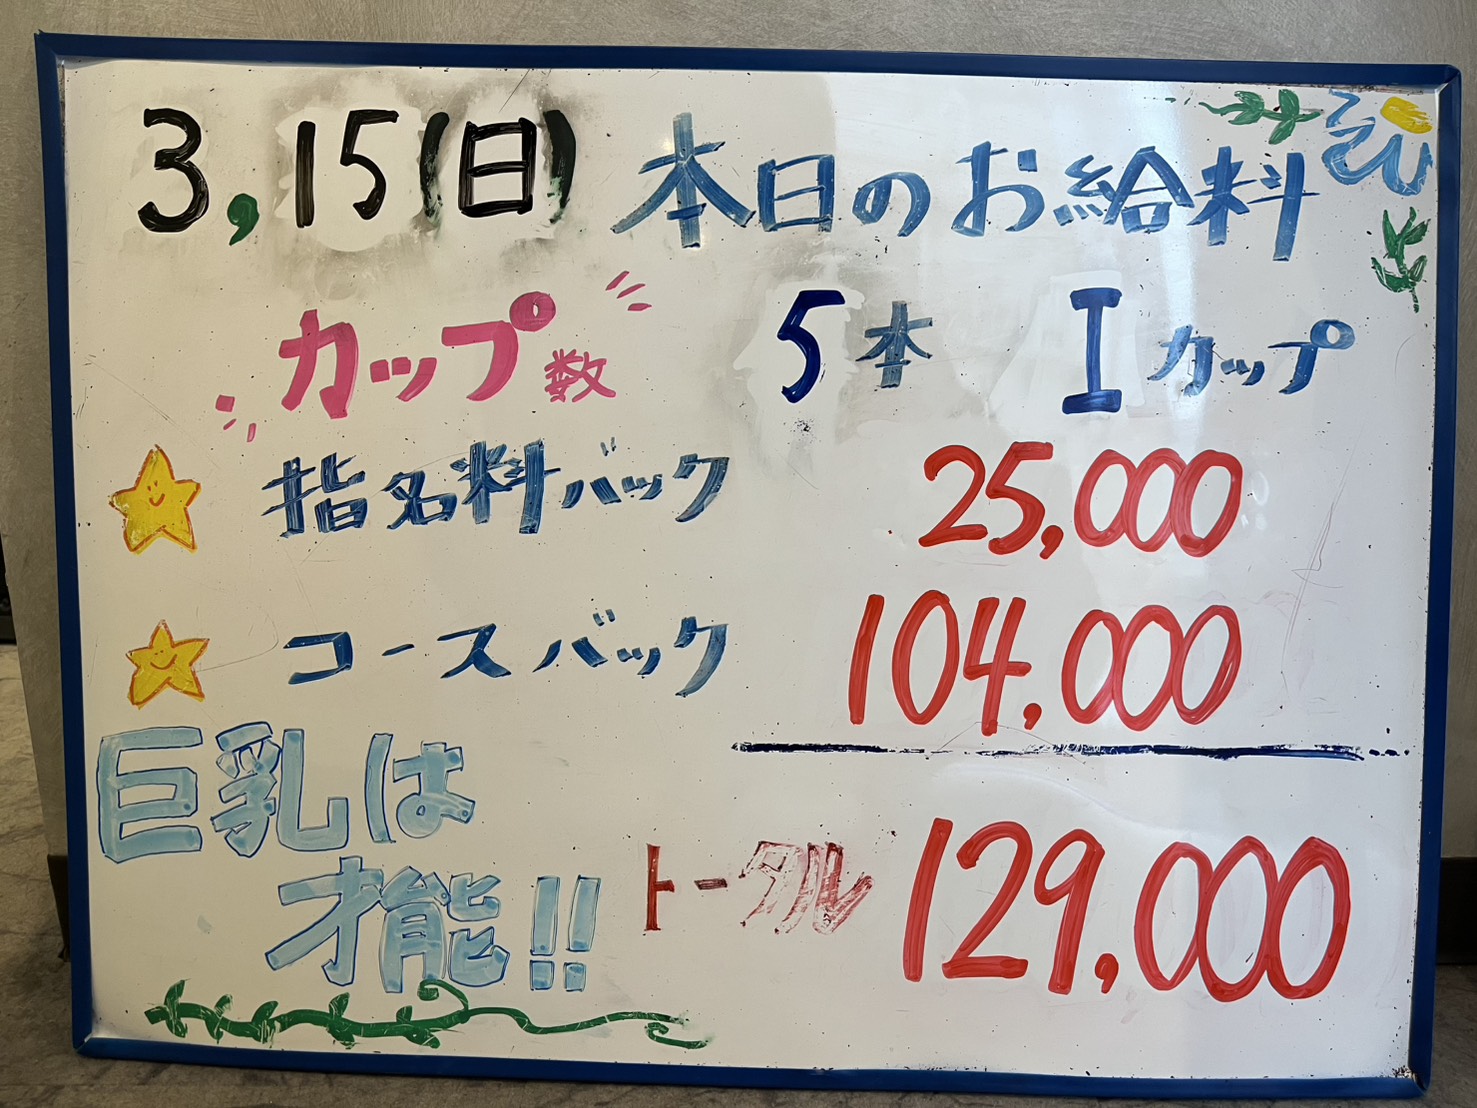 3,15(日) 本日のお給料
カップ数 5本 Iカップ
指名料バック 25,000
コースバック 104,000
巨乳は
才能!!
トータル 129,000